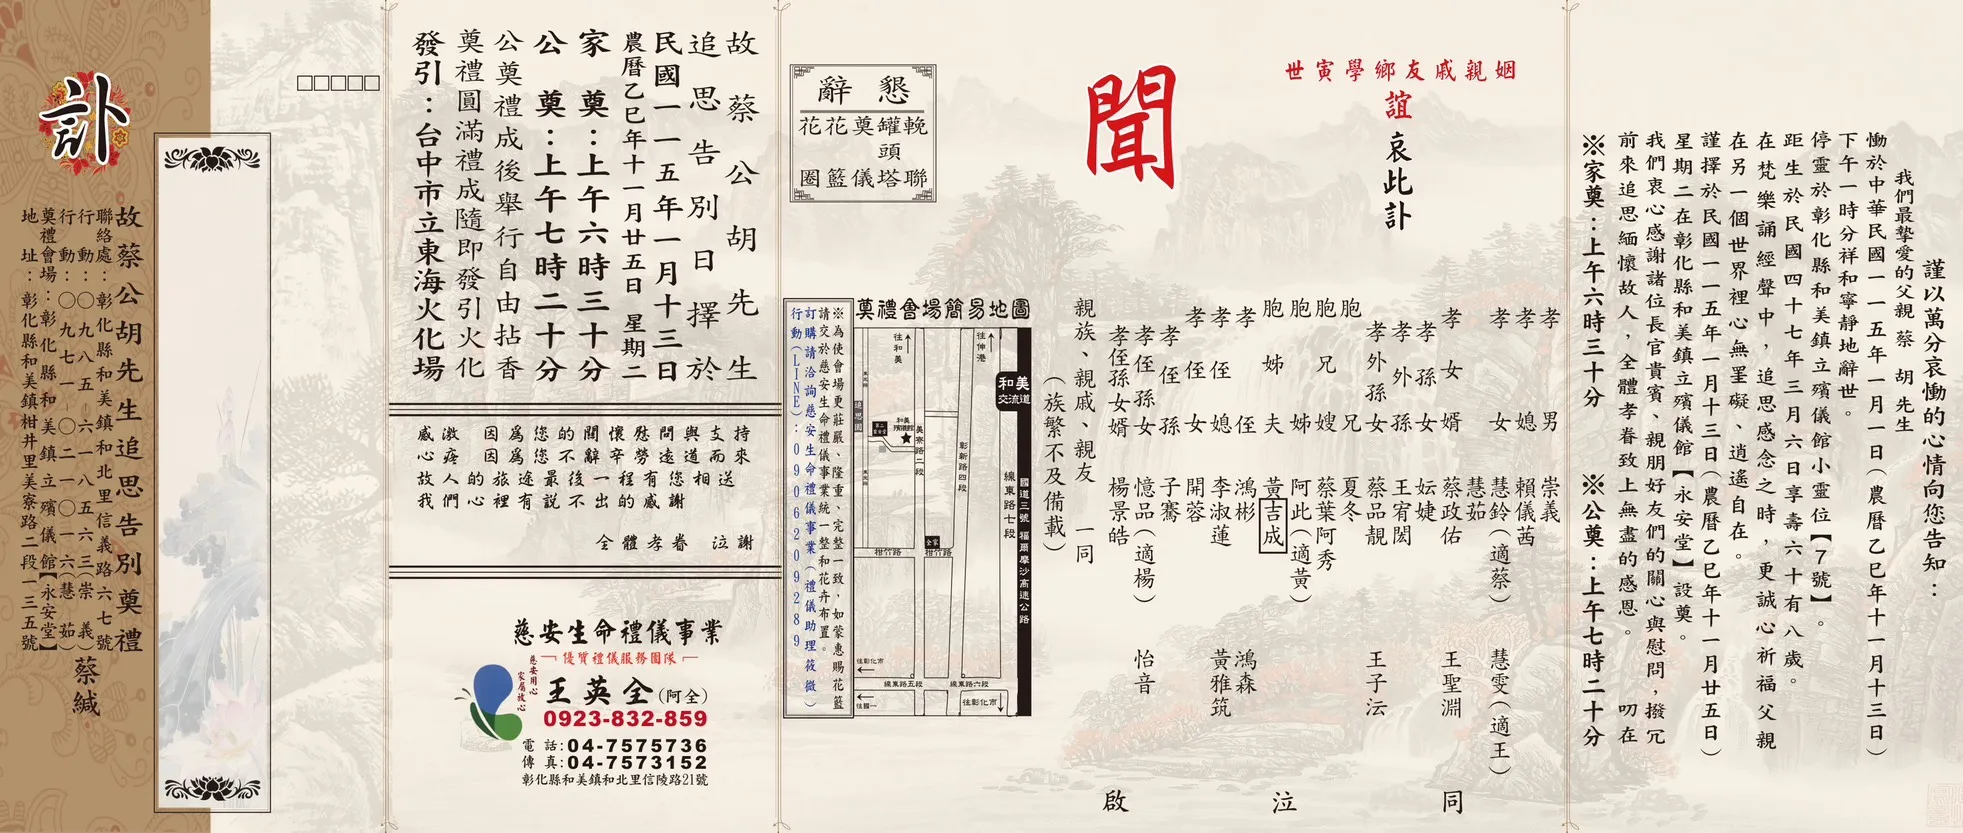 謹以萬分哀慟的心情向您告知：
我們最摯愛的父親 蔡 胡 先生
慟於中華民國一一五年一月一日(農曆乙巳年十一月十三日)
下午一時分祥和寧靜地辭世。
停靈於彰化縣和美鎮立殯儀館小靈位【7號】。
距生於民國四十七年三月六日享壽六十有八歲。
在梵樂誦經聲中，追思感念之時，更誠心祈福父親
在另一個世界裡心無罣礙、逍遙自在。
謹擇於民國一一五年一月十三日(農曆乙巳年十一月廿五日)
星期二在彰化縣和美鎮立殯儀館【永安堂】設奠。
我們衷心感謝諸位長官貴賓、親朋好友們的關心與慰問，撥冗
前來追思緬懷故人，全體孝眷致上無盡的感恩。 叨在
※家奠：上午六時三十分 ※公奠：上午七時二十分
姻親戚友鄉學寅世
誼
哀此訃
聞
孝男 崇義
孝媳 賴儀茜
孝女 慧鈴(適蔡) 慧雯(適王)
慧茹
孝女婿 蔡政佑 王聖淵
孝孫女 妘婕
孝外孫 王宥閎
孝外孫女 蔡品靚 王子沄
胞兄 夏冬
胞兄嫂 蔡葉阿秀
胞姊 阿此(適黃)
胞姊夫 黃吉成
孝侄 鴻彬 鴻森
孝侄媳 李淑蓮 黃雅筑
孝侄女 開蓉
孝侄孫 子騫
孝侄孫女 憶品(適楊) 怡音
孝侄孫女婿 楊景皓
親族、親戚、親友 一同
(族繁不及備載)
同 泣 啟
懇辭
輓聯
罐頭塔
奠儀
花籃
花圈
奠禮會場簡易地圖
往和美
往伸港
和美交流道
追思園
和美殯儀館
美寮路二段
彰新路四段
線東路七段
國道三號 福爾摩沙高速公路
柑竹路
全家
柑竹路
往彰化市
線東路五段
線東路六段
往國一
往彰化市
※為使會場更莊嚴、隆重、完整一致，如蒙惠賜花籃
請交於慈安生命禮儀事業統一整和花卉布置。
訂購請洽詢慈安生命禮儀事業(禮儀助理筱微)
行動(LINE)：0906209289
故蔡公胡先生
追思告別日擇於
民國一一五年一月十三日
農曆乙巳年十一月廿五日 星期二
家 奠：上午六時三十分
公 奠：上午七時二十分
公奠禮成後舉行自由拈香
奠禮圓滿禮成隨即發引火化
發引：台中市立東海火化場
感激 因為您的關懷慰問與支持
心疼 因為您不辭辛勞遠道而來
故人的旅途最後一程有您相送
我們心裡有說不出的感謝
全體孝眷 泣謝
慈安生命禮儀事業
優質禮儀服務團隊
慈安用心
家屬放心
王英全(阿全)
0923-832-859
電 話:04-7575736
傳 真:04-7573152
彰化縣和美鎮和北里信陵路21號
訃
故蔡公胡先生追思告別奠禮
聯絡處：彰化縣和美鎮和北里信義路六七號
行 動：〇九八五-六一八五六三(崇 義)
行 動：〇九七一-〇二一〇一六(慧 茹)
奠禮會場：彰化縣和美鎮立殯儀館【永安堂】
地 址：彰化縣和美鎮柑井里美寮路二段一三五號
蔡緘